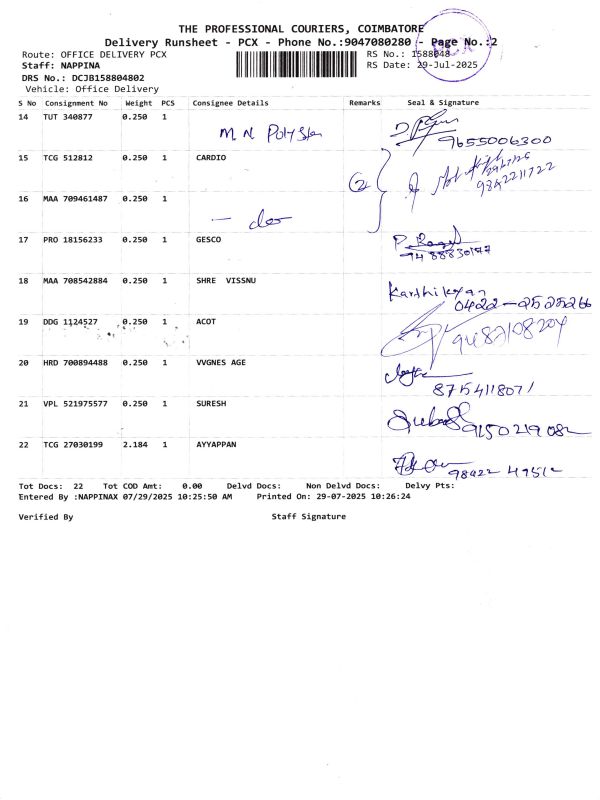 THE PROFESSIONAL COURIERS, COIMBATORE
Delivery Runsheet - PCX - Phone No.:9047080280 - Page No.:2
Route: OFFICE DELIVERY PCX RS No.: 1588048
Staff: NAPPINA RS Date: 29-Jul-2025
DRS No.: DCJB158804802
Vehicle: Office Delivery
S No Consignment No Weight PCS Consignee Details Remarks Seal & Signature
14 TUT 340877 0.250 1 M N Polyster
9655006300
15 TCG 512812 0.250 1 CARDIO
(2)
9842211722
16 MAA 709461487 0.250 1
17 PRO 18156233 0.250 1 GESCO
18 MAA 708542884 0.250 1 SHRE VISSNU Karthikeyan
0422-2525266
19 DDG 1124527 0.250 1 ACOT
9487108204
20 HRD 700894488 0.250 1 VVGNES AGE
8754118071
21 VPL 521975577 0.250 1 SURESH
9150219082
22 TCG 27030199 2.184 1 AYYAPPAN
Tot Docs: 22 Tot COD Amt: 0.00 Delvd Docs: Non Delvd Docs: Delvy Pts:
Entered By :NAPPINAX 07/29/2025 10:25:50 AM Printed On: 29-07-2025 10:26:24
Verified By Staff Signature